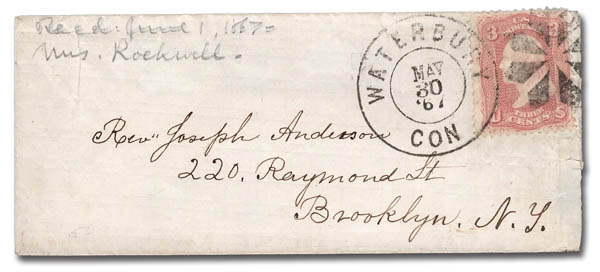 Recd. June 1, 1867 =
Mrs. Rockwell =
WATERBURY
MAY
30
'67
CON
3 U.S. 3
U S
THREE
CENTS
Rev'' Joseph Anderson
220. Raymond St
Brooklyn. N. Y.